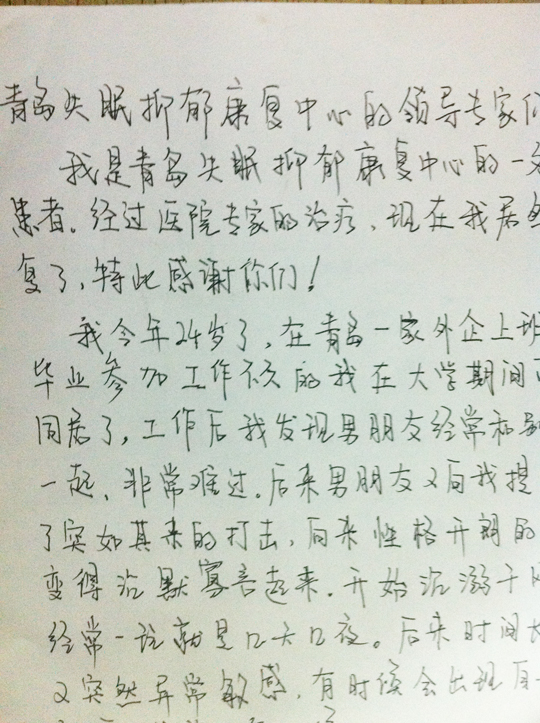 青岛失眠抑郁康复中心的领导专家们
我是青岛失眠抑郁康复中心的一名
患者。经过医院专家的治疗，现在我居然
复了，特此感谢你们！
我今年24岁了，在青岛一家外企上班
毕业参加工作不久的我在大学期间
同居了，工作后我发现男朋友经常和别
一起，非常难过。后来男朋友又向我提
了突如其来的打击，向来性格开朗的
变得沉默寡言起来．开始沉溺于
经常一说就是口天口夜。后来时间长
又突然异常敏感，有时候会出现自